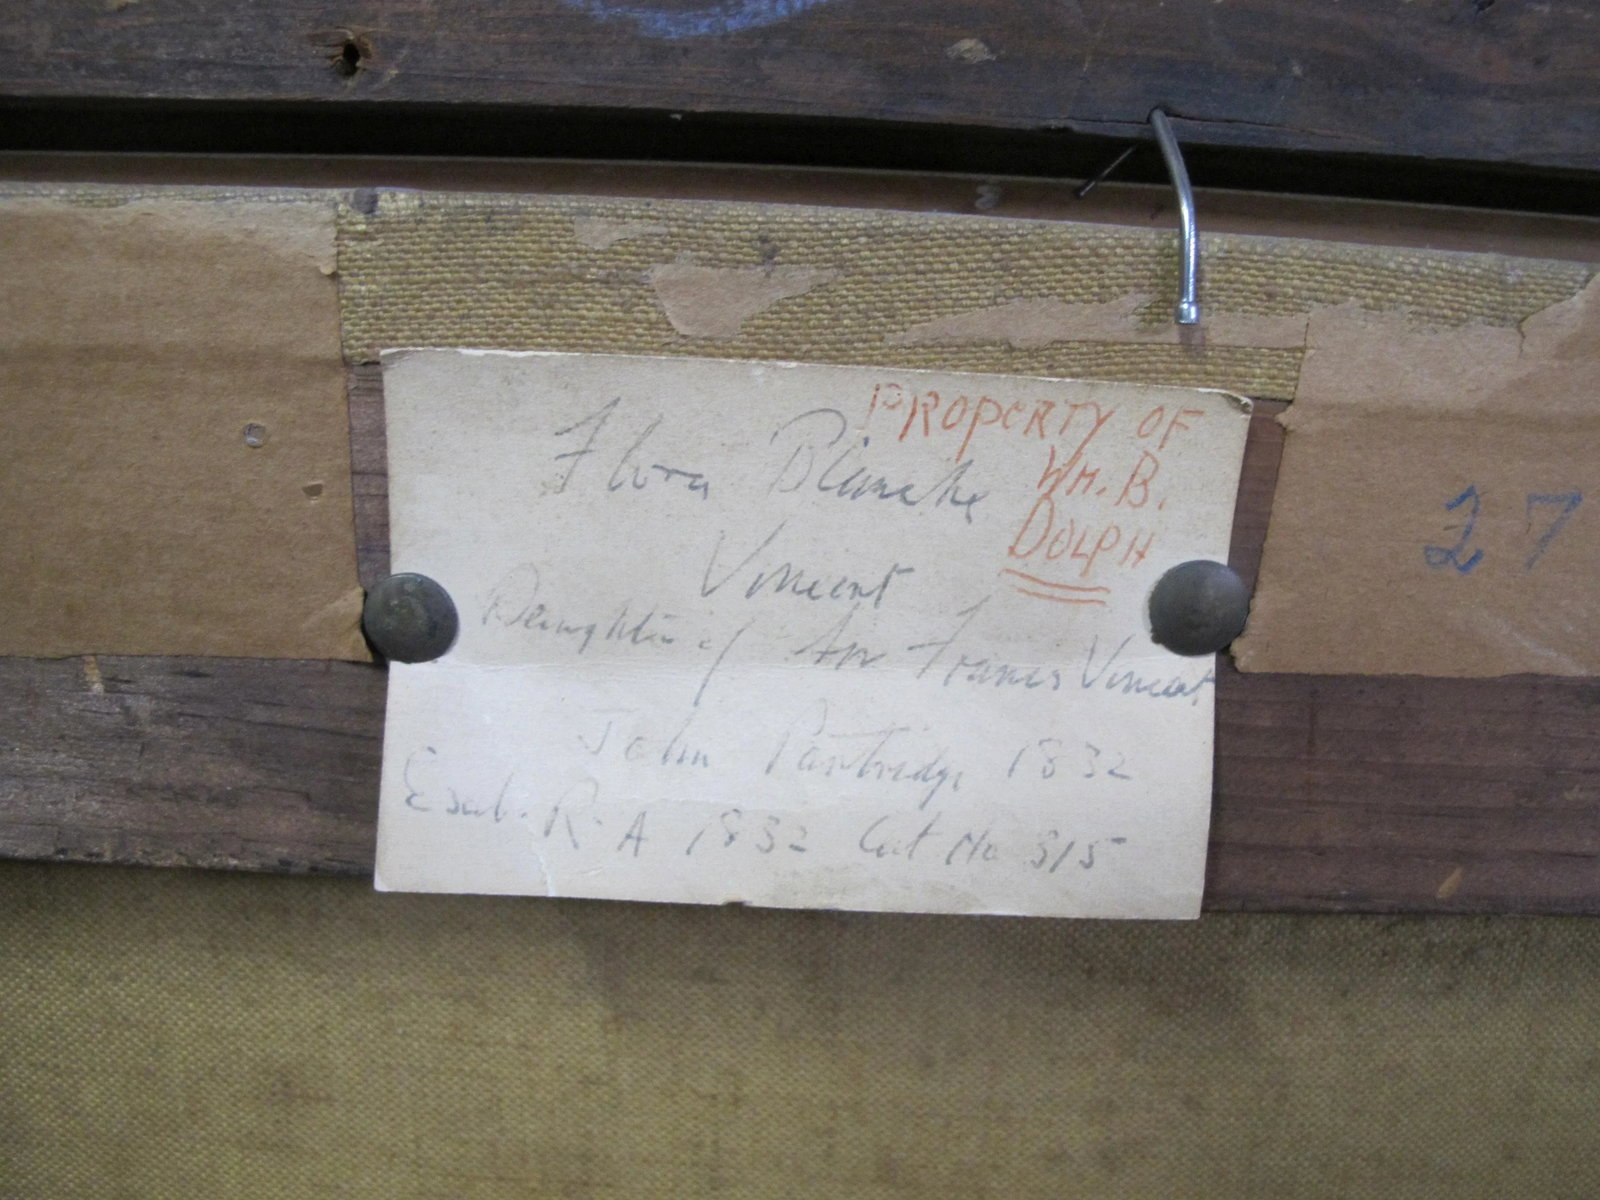 PROPERTY OF
WM. B.
DOLPH
Flora Blanche
Vincent
Daughter of Sir Francis Vincent
John Partridge 1832
Exh. R. A 1832 Cat No 315
27